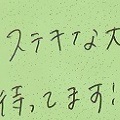 ステキな大
待ってます!